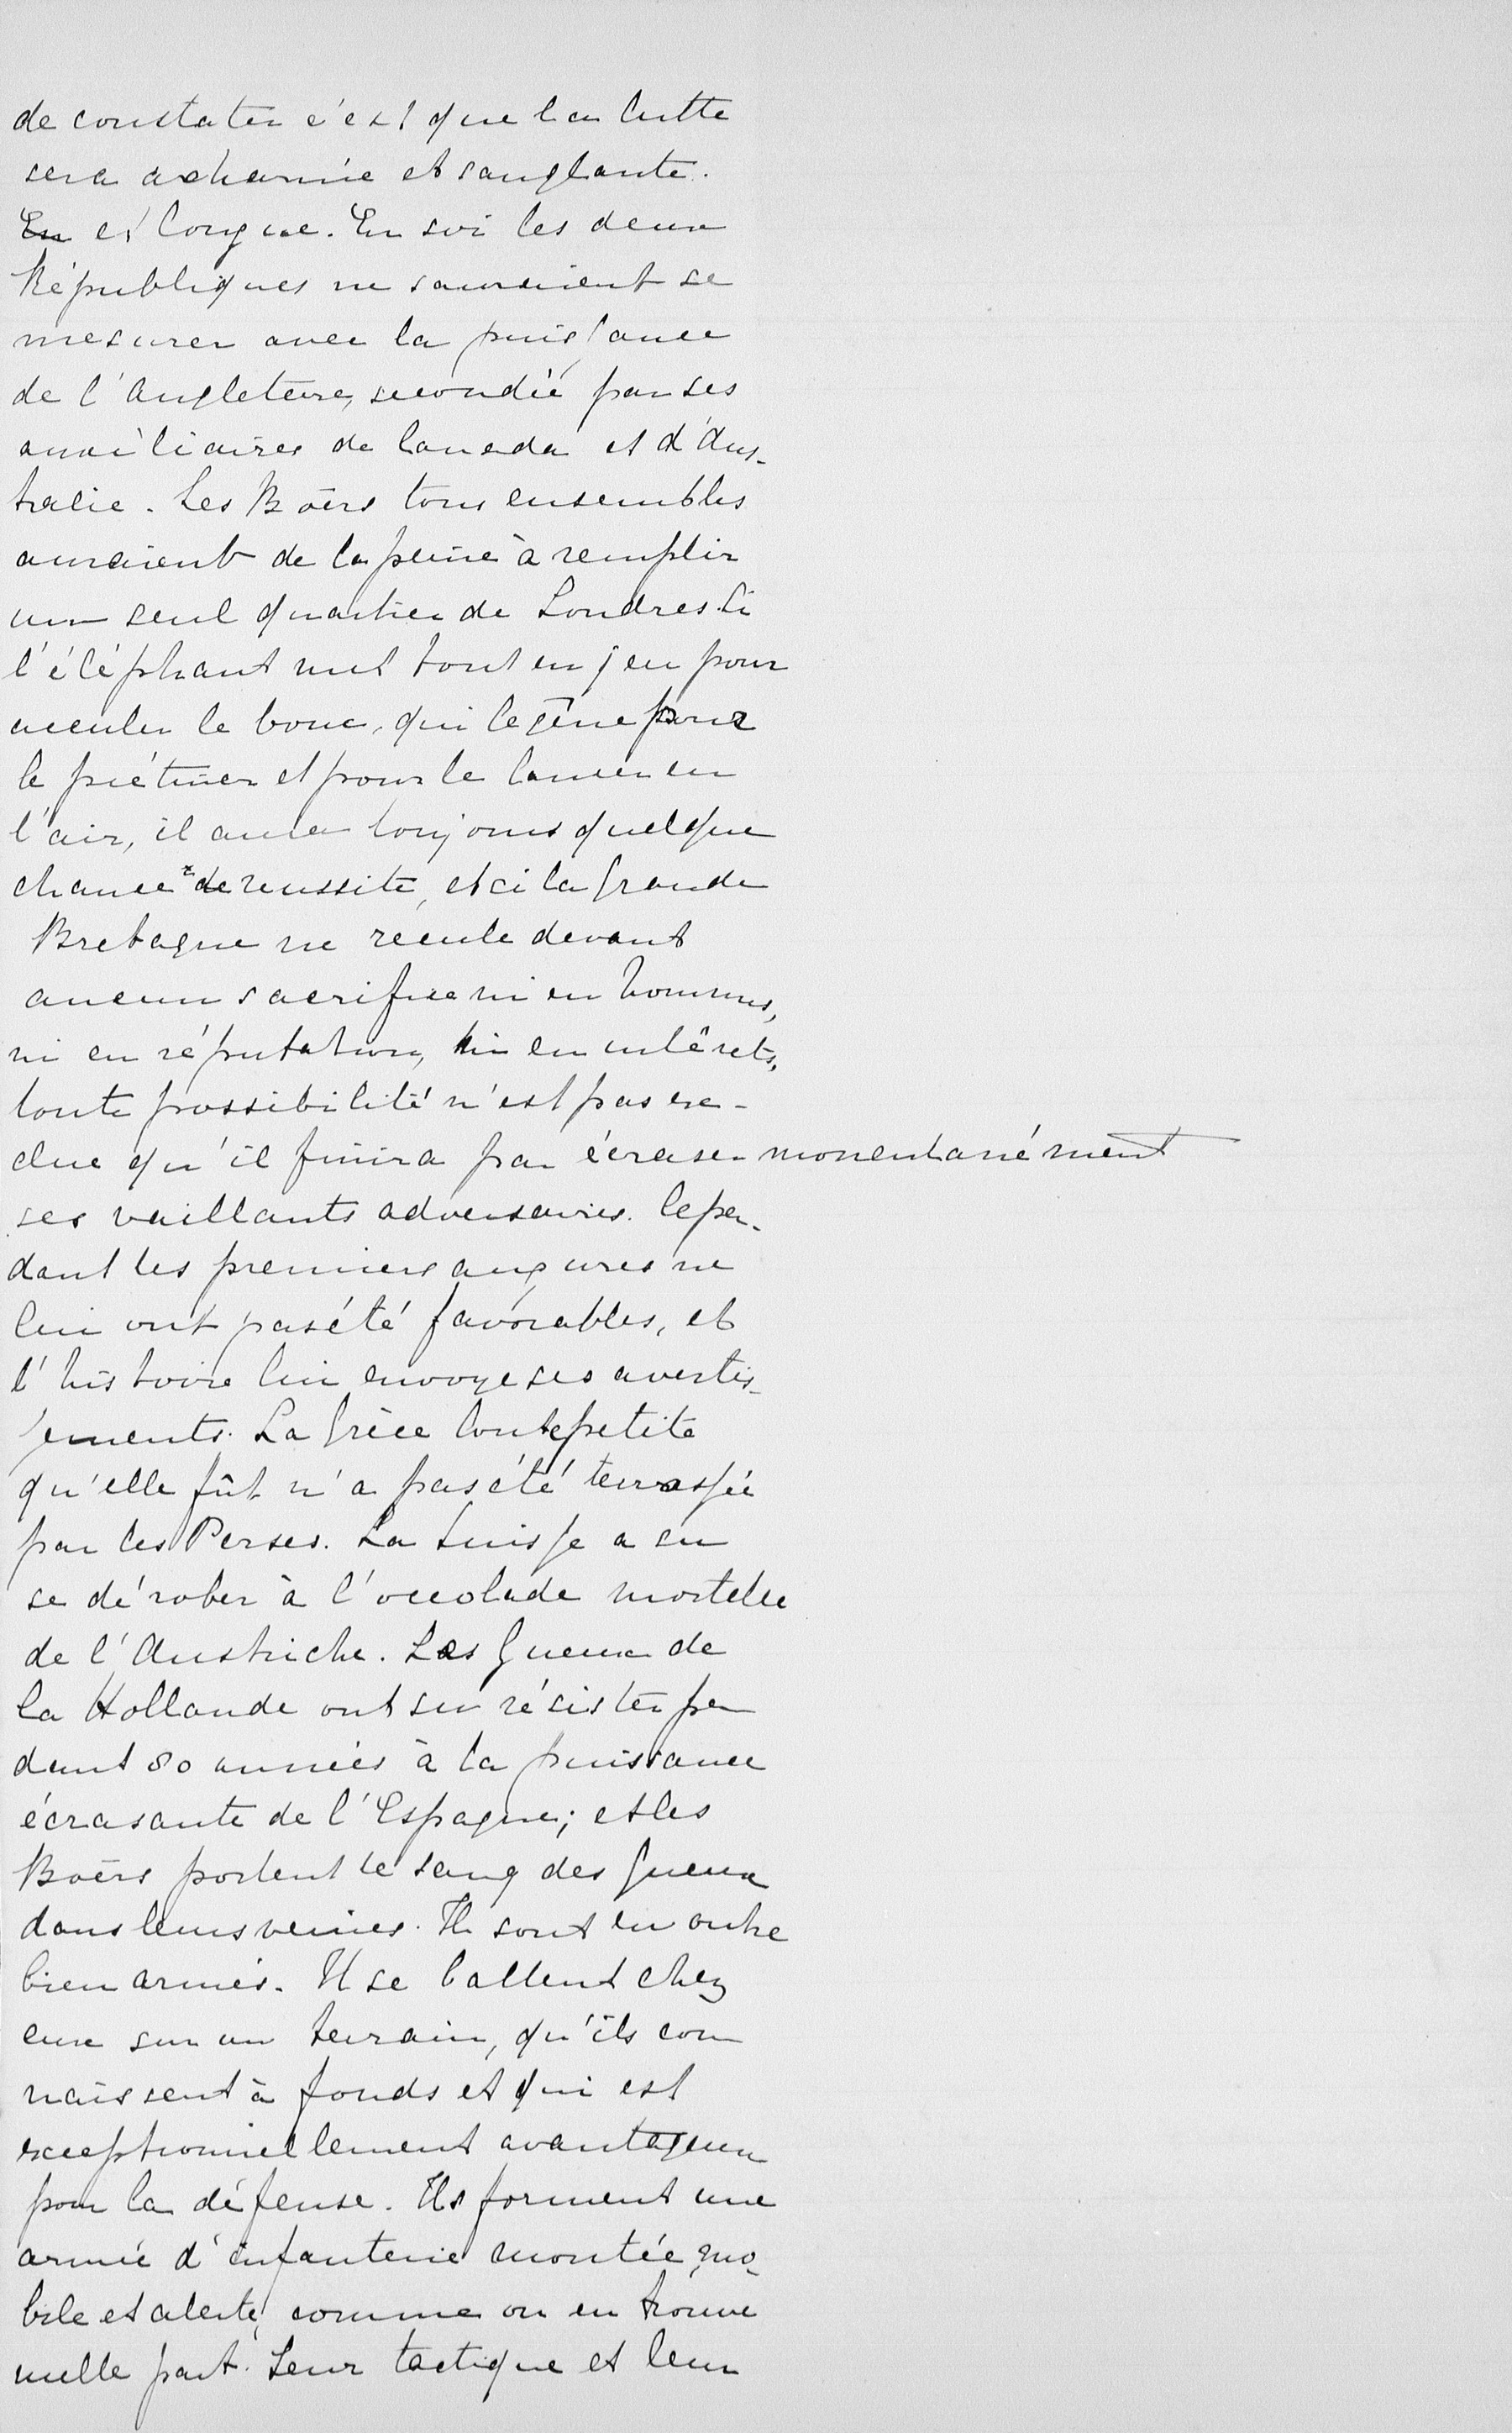 de constater c'est que la lutte
sera acharnée et sanglante.
En et longue. En soi les deux
Républiques ne sauraient se
mesurer avec la puissance
de l'Angleterre, secondée par ses
auxiliaires de Canada et d'Aus-
tralie. Les Boërs tous ensembles
auraient de la peine à remplir
un seul quartier de Londres. Si
l'éléphant met tout en jeu pour
acculer le bouc, qui le gêne pour
le piétiner et pour le lancer en
l'air, il aura toujours quelque
chance de reussite, et si la Grande
Bretagne ne récule devant
aucun sacrifice ni en hommes,
ni en réputation, ni en intêrets,
toute possibilité n'est pas ex-
clue qu'il finira par écraser momentanément
ses vaillants adversaires. Cepen-
dant les premiers augures ne
lui ont pas été favorables, et
l'histoire lui envoye ses avertis-
sements. La Grèce toute petite
qu'elle fût n'a pas été terrassée
par les Perses. La Suisse a su
se dérober à l'accolade mortelle
de l'Autriche. Les Gueux de
la Hollande ont su résister pen
dant 80 années à la puissance
écrasante de l'Espagne; et les
Boërs portent le sang des Gueux
dans leurs veines. Ils sont en outre
bien armés. Il se battent chez
eux sur un terrain, qu'ils con
naissent à fonds et qui est
exceptionnellement avantageux
pour la défense. Ils forment une
armée d'infanterie montée, mo-
bile et alerte, comme on en trouve
nulle part. Leur tactique et leur